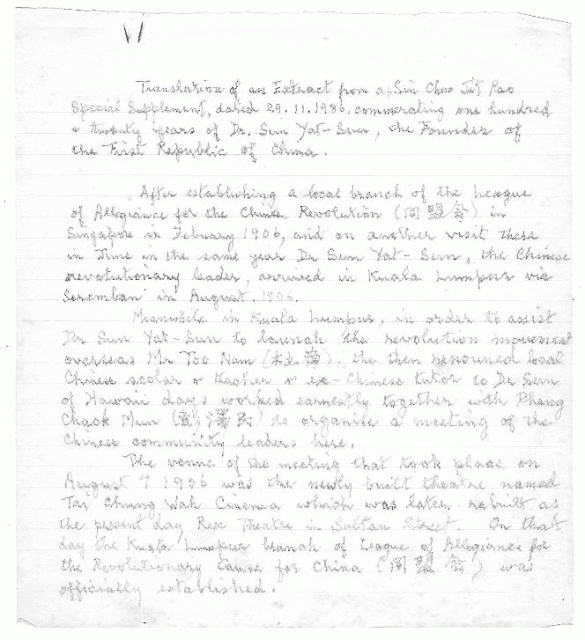 Translation of an Extract from a Sin Chew Jit Poo
Special Supplement, dated 29.11.1986, commerating one hundred
& twenty years of Dr. Sun Yat-Sen, the Founder of
the First Republic of China.
After establishing a local branch of the League
of Allegiance for the Chinese Revolution (同盟會) in
Singapore in Febuary 1906, and on another visit there
in June in the same year Dr Sun Yat-Sen, the Chinese
revolutionary leader, arrived in Kuala Lumpur via
Seremban in August, 1906.
Meanwhile in Kuala Lumpur, in order to assist
Dr Sun Yat-Sun to launch the revolution movement
overseas Mr Too Nam (杜南), the then renouned local
Chinese scolar & teacher & ex-Chinese tutor to Dr Sun
of Hawaii days worked earnestly together with Phang
Chack Mun to organise a meeting of the
Chinese community leaders here.
The venue of the meeting that took place on
August 7 1906 was the newly built theatre named
Tai Chung Wah Cinema which was later rebuilt as
the present day Rex Theatre in Sultan Street. On that
day the Kuala Lumpur branch of League of Allegiance for
the Revolutionary Cause for China (同盟會) was
officially established.